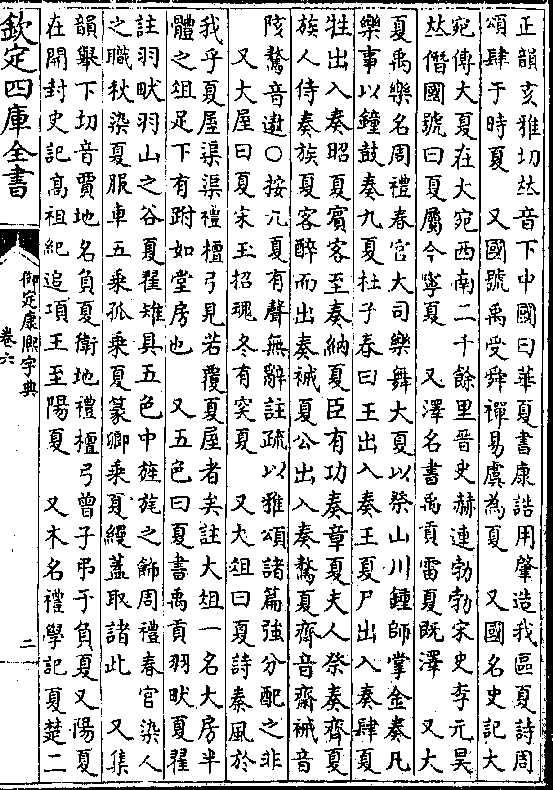 正韻亥雅切𠀤音下中國曰華夏書康誥用肇造我區夏詩周
頌肆于時夏 又國號禹受舜禪易虞為夏 又國名史記大
宛傳大夏在大宛西南二千餘里晋史赫連勃勃宋史李元昊
𠀤僭國號曰夏屬今寧夏 又澤名書禹貢雷夏既澤 又大
夏禹樂名周禮春官大司樂舞大夏以祭山川鍾師掌金奏凡
樂事以鐘鼓奏九夏杜子春曰王出入奏王夏尸出入奏肆夏
牲出入奏昭夏賓客至奏納夏臣有功奏章夏夫人祭奏齊夏
族人侍奏族夏客醉而出奏祴夏公出入奏驁夏齊音齋祴音
陔驁音遨○按九夏有聲無辭註疏以雅頌諸篇強分配之非
 又大屋曰夏宋玉招魂冬有突夏 又大俎曰夏詩秦風於
我乎夏屋渠渠禮檀弓見若覆夏屋者矣註大俎一名大房半
體之俎足下有跗如堂房也 又五色曰夏書禹貢羽畎夏翟
註羽畎羽山之谷夏翟雉具五色中旌旄之飾周禮春官染人
之職秋染夏服車五乘孤乘夏篆卿乘夏縵蓋取諸此 又集
韻舉下切音賈地名負夏衛地禮檀弓曾子弔于負夏又陽夏
在開封史記高祖紀追項王至陽夏 又木名禮學記夏楚二
欽定四庫全書
御定康熙字典
卷六
二